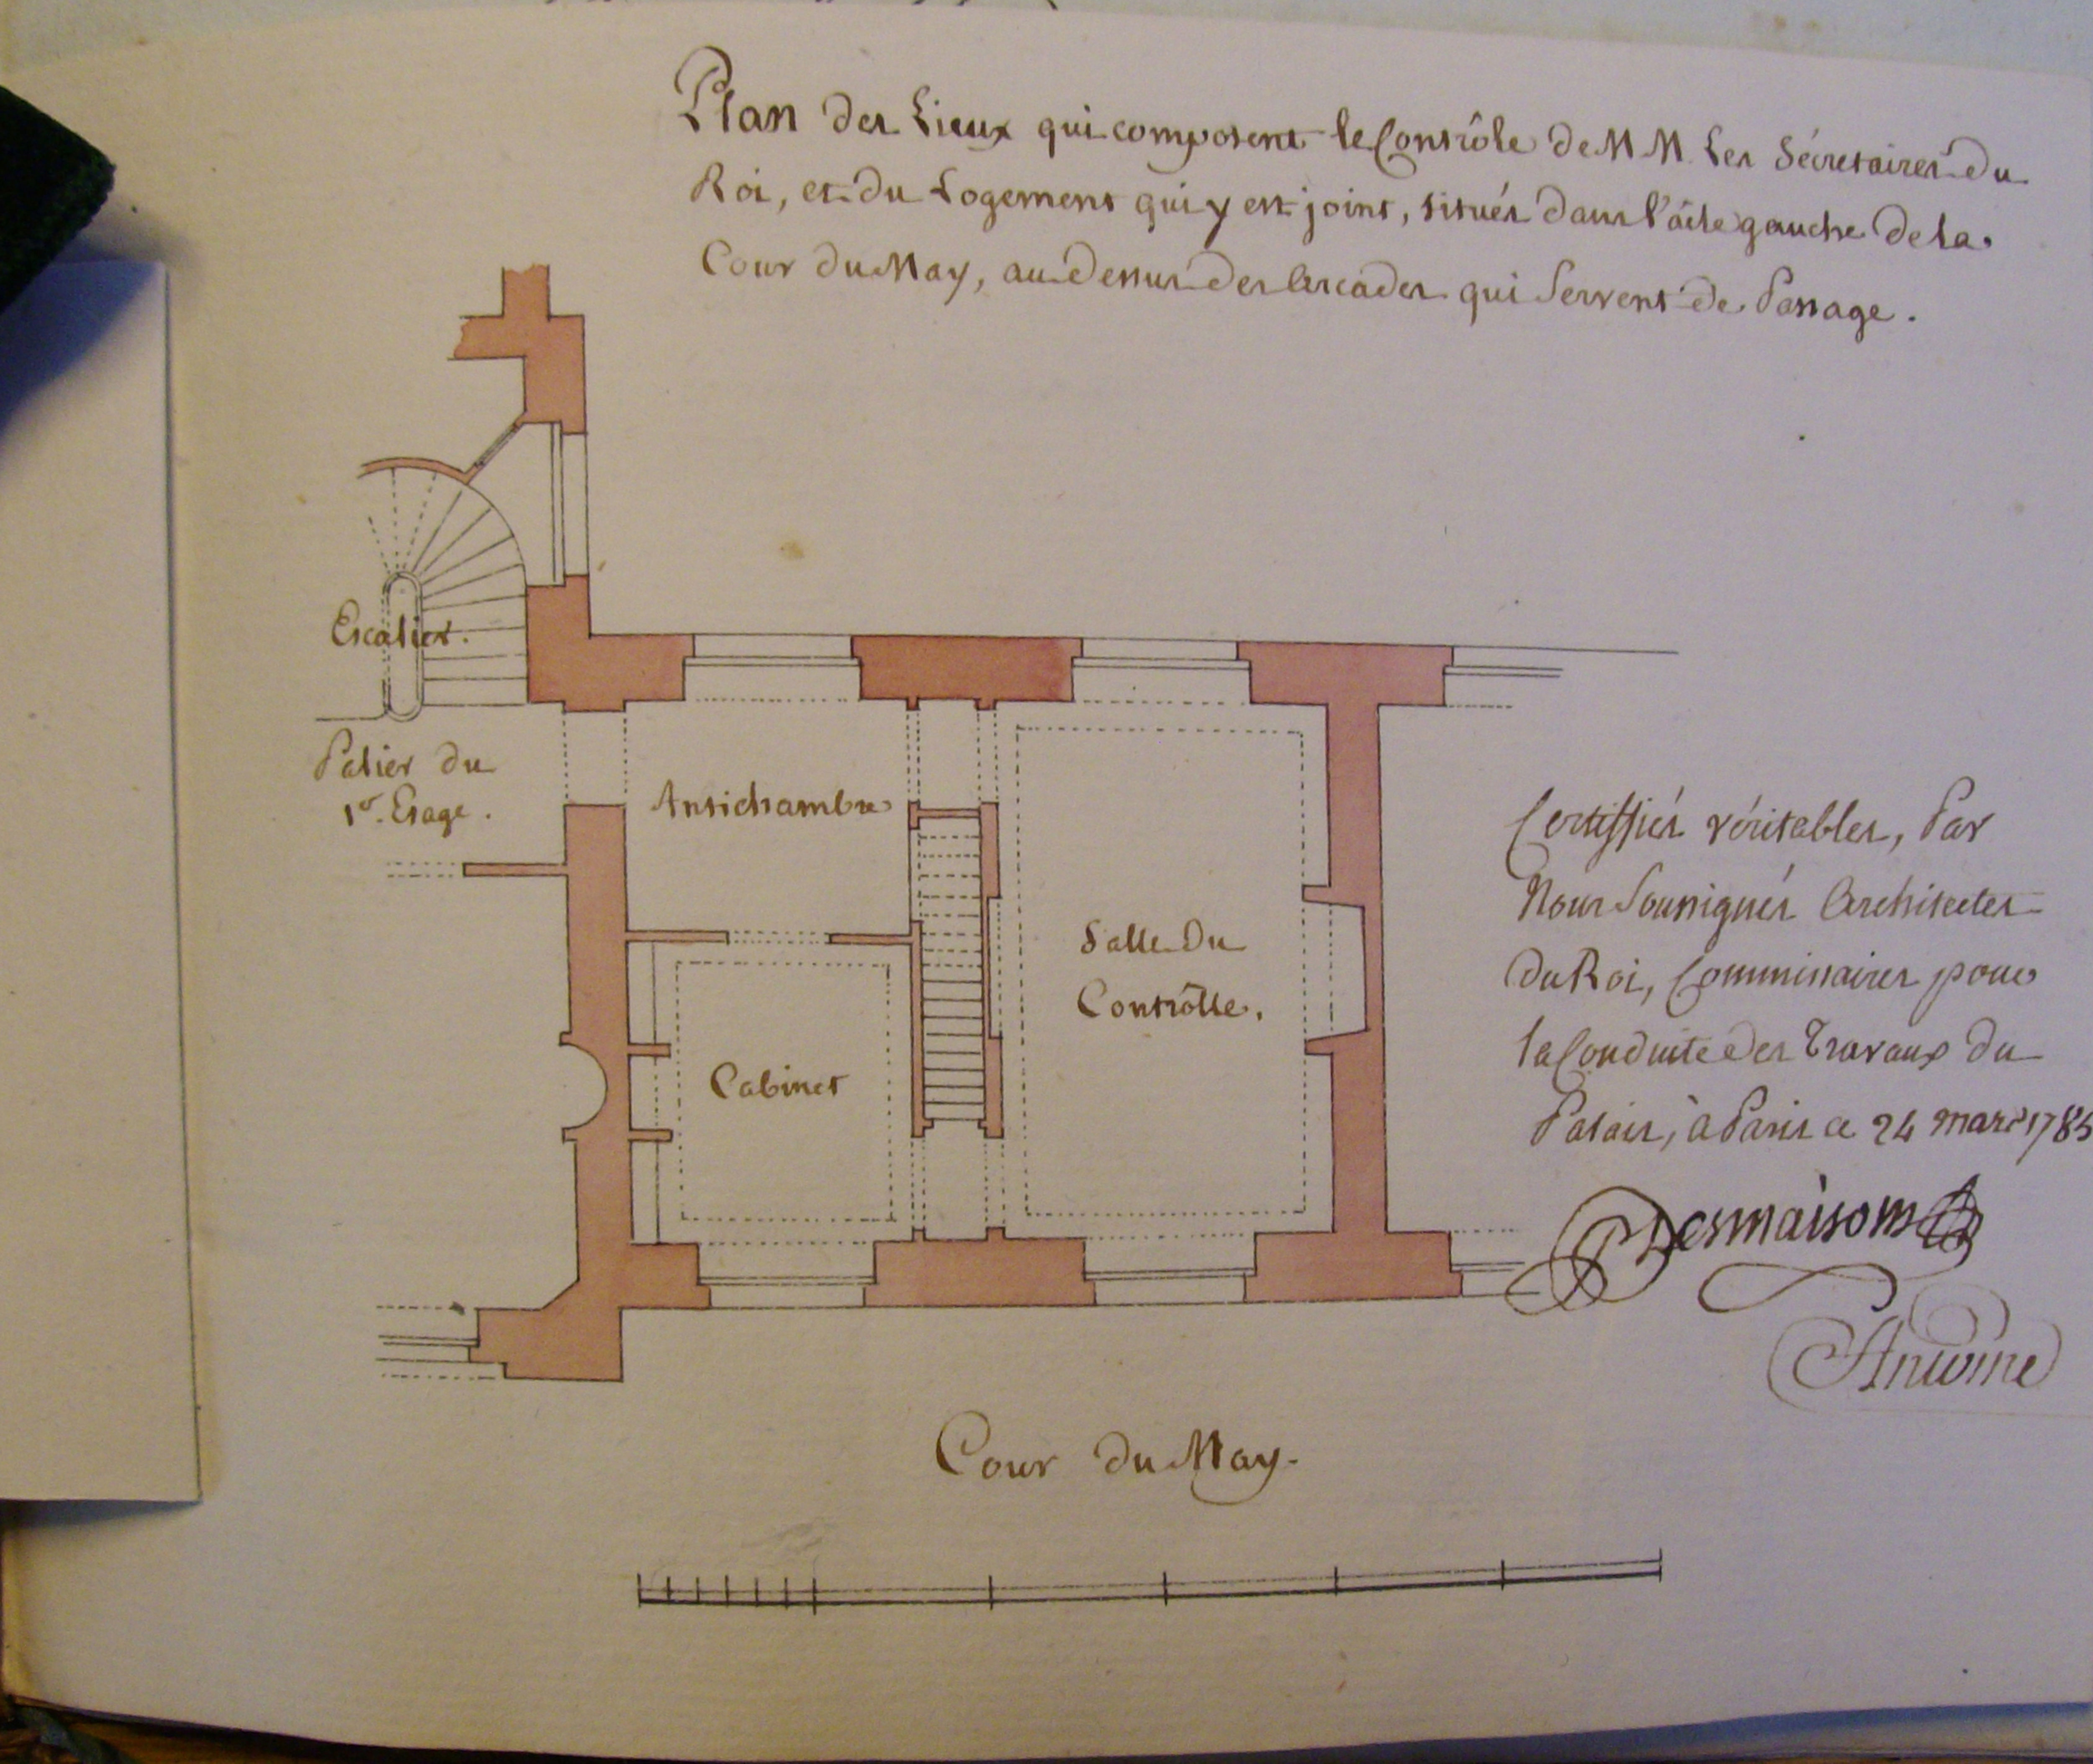 Plan des Lieux qui composent le Contrôle de MM. Les Sécretaires du
Roi, et du Logement qui y est joint, situés dans l'aîle gauche de la
Cour du May, au dessus des Arcades qui Servent de Passage.
Escalier.
Palier du
1er. Etage.
Antichambre
Salle Du
Contrôlle.
Cabinet
Certiffiés véritables, Par
Nous Soussignés Architectes
du Roi, Commissaires pour
la Conduite des Travaux du
Palais, à Paris ce 24 mars
Desmaisons
Antoine
Cour du May.